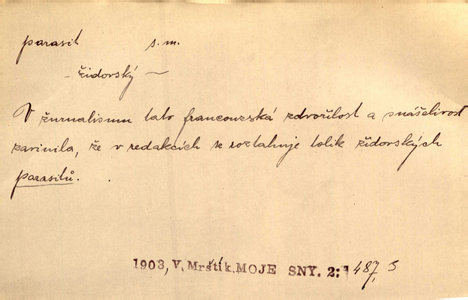 parasit s. m.
- židorský -
V žurnalismu tato francouzská zdvořilost a snášelivost
zavinila, že v redakcích se roztahuje tolik židorských
parasitů.
1903, V. Mrštík. MOJE SNY. 2: 487,5